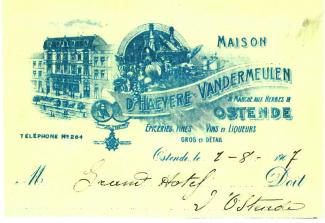 MAISON
D'HAEYERE-VANDERMEULEN
MARCHÉ AUX HERBES
OSTENDE
EPICERIES FINES VINS et LIQUEURS
GROS et DÉTAIL
TÉLÉPHONE No 264
Ostende, le 2-8-1907
M Grand Hotel Doit
d'Ostende